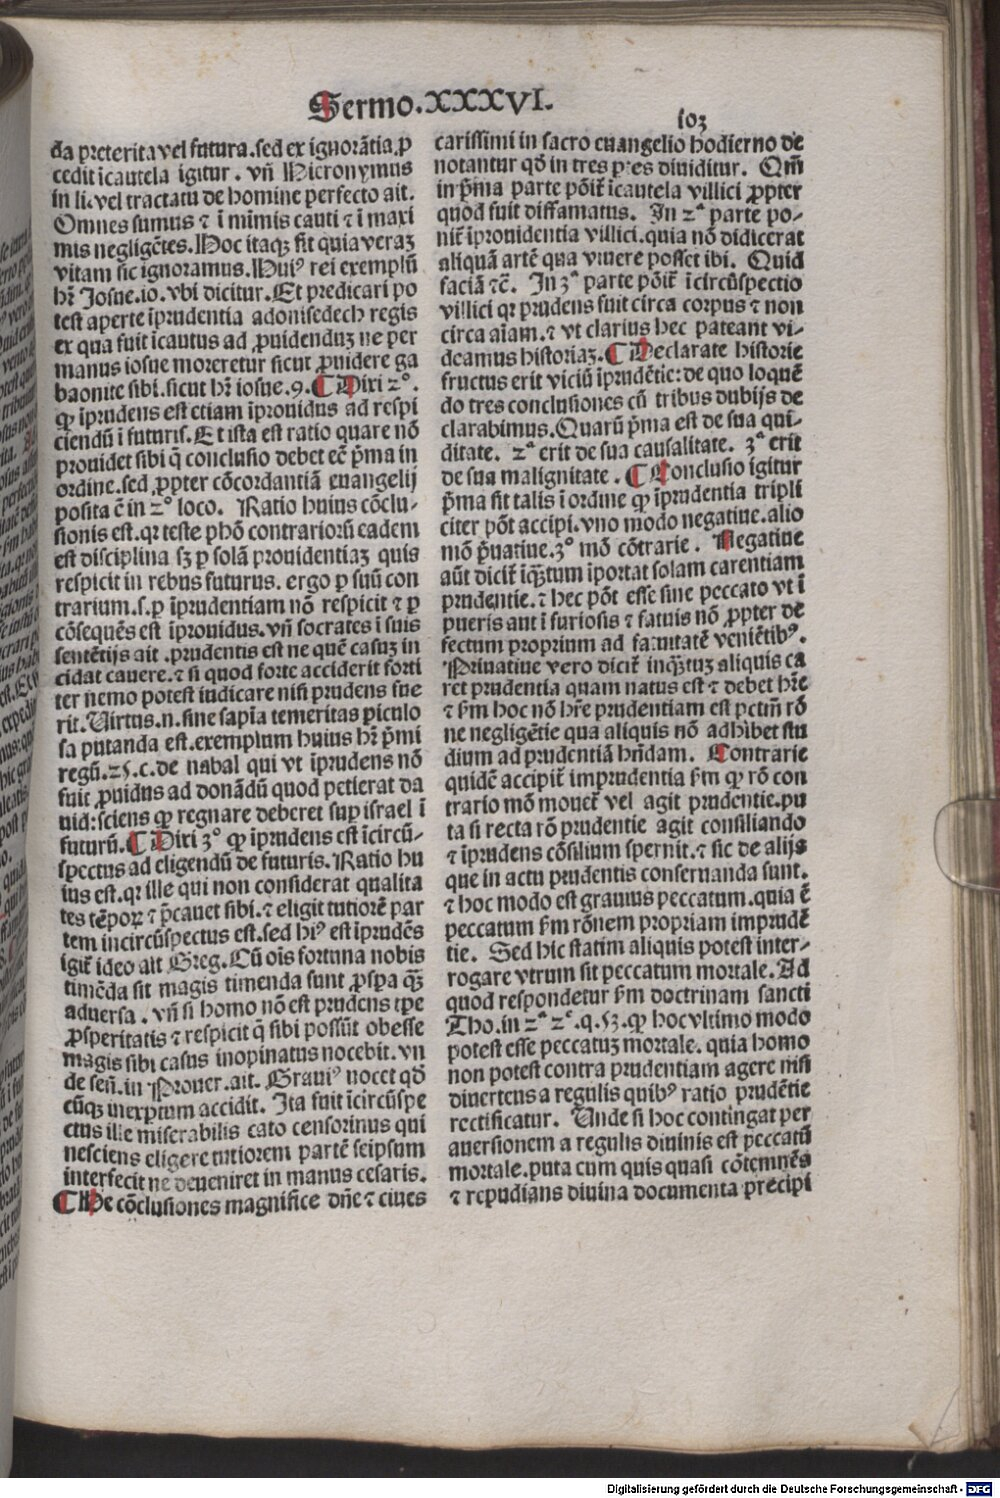 Sermo.XXXVI.
103
da preterita vel futura.sed ex ignorātia ꝓ
cedit īcautela igitur . vñ Hieronymus
in li.vel tractatu de homine perfecto ait.
Omnes sumus ⁊ ī minimis cauti ⁊ ī maxi
mis negligētes.Hoc itaqꝫ fit quia veraꝫ
vitam sic ignoramus.Huiꝰ rei exemplū
hr̄ Iosue.10.vbi dicitur.Et predicari po
test aperte īprudentia adonisedech regis
ex qua fuit īcautus ad ꝓuidenduꝫ ne per
manus iosue moreretur sicut ꝓuidere ga
baonite sibi.sicut hr̄ iosue.9.¶ Dixi 2°.
ꝙ īprudens est etiam īprouidus ad respi
ciendū ī futuris.Et ista est ratio quare nō
prouidet sibi q̄ conclusio debet eē p̄ma in
ordine.sed ꝓpter cōcordantiā euangelij
posita ē in 2° loco. Ratio huius cōclu-
sionis est.qꝛ teste phō contrariorū eadem
est disciplina sꝫ ꝑ solā prouidentiaꝫ quis
respicit in rebus futurus. ergo ꝑ suū con
trarium.s.ꝑ īprudentiam nō respicit ⁊ ꝑ
cōsequēs est īprouidus.vñ socrates ī suis
sentētijs ait .prudentis est ne quē casuꝫ in
cidat cauere.⁊ si quod forte acciderit forti
ter nemo potest iudicare nisi prudens fue
rit.Virtus.n.sine sapīa temeritas piculo
sa putanda est.exemplum huius hr̄ p̄mi
regū.25.c.de nabal qui vt īprudens nō
fuit ꝓuidus ad donādū quod petierat da
uid:sciens ꝙ regnare deberet suꝑ israel ī
futurū.¶ Dixi 3° ꝙ īprudens est īcircū-
spectus ad eligendū de futuris.Ratio hu
ius est.qꝛ ille qui non considerat qualita
tes tēpoꝝ ⁊ p̄cauet sibi.⁊ eligit tutiorē par
tem incircūspectus est.sed hiꝰ est īprudēs
igit̄ ideo ait Greg.Cū oīs fortuna nobis
timēda sit magis timenda sunt ꝓspa qꝫ̄
aduersa . vñ si homo nō est prudens tpe
ꝓsperitatis ⁊ respicit q̄ sibi possūt obesse
magis sibi casus inopinatus nocebit.vn
de señ.in Prouer.ait. Grauiꝰ nocet qđ
cūqꝫ inexptum accidit. Ita fuit īcircūspe
ctus ille miserabilis cato censorinus qui
nesciens eligere tutiorem partē seipsum
interfecit ne deueniret in manus cesaris.
¶ He cōclusiones magnifice dn̄e ⁊ ciues
carissimi in sacro euangelio hodierno de
notantur qđ in tres p̄tes diuiditur. Qm̄
in p̄ma parte pōit̄ īcautela villici ꝓpter
quod fuit diffamatus. In 2ª parte po-
nit̄ īprouidentia villici.quia nō didicerat
aliquā artē qua viuere posset ibi. Quid
faciā ⁊c̄. In 3ª parte pōit̄ īcircūspectio
villici qꝛ prudens fuit circa corpus ⁊ non
circa aīam.⁊ vt clarius hec pateant vi-
deamus historiaꝫ.¶ Declarate historie
fructus erit viciū īprudētie:de quo loquē
do tres conclusiones cū tribus dubijs de
clarabimus.Quarū p̄ma est de sua qui-
ditate. 2ª erit de sua causalitate. 3ª erit
de sua malignitate . ¶ Conclusio igitur
p̄ma sit talis ī ordine ꝙ īprudentia tripli
citer pōt accipi.vno modo negatiue.alio
mō p̄uatiue.3° mō cōtrarie . Negatiue
aūt dicit̄ īqꝫ̄tum īportat solam carentiam
prudentie.⁊ hec pōt esse sine peccato vt ī
pueris aut ī furiosis ⁊ fatuis nō ꝓpter de
fectum proprium ad facuitatē veniētibꝰ.
Priuatiue vero dicit̄ inqꝫ̄tuꝫ aliquis ca
ret prudentia quam natus est ⁊ debet hr̄e
⁊ ẜm hoc nō hr̄e prudentiam est pctm̄ rō
ne negligētie qua aliquis nō adhibet stu
dium ad prudentiā hn̄dam. Contrarie
quidē accipit̄ imprudentia ẜm ꝙ rō con
trario mō mouet̄ vel agit prudentie.pu
ta si recta rō prudentie agit consiliando
⁊ īprudens cōsilium spernit.⁊ sic de alijs
que in actu prudentis conseruanda sunt.
⁊ hoc modo est grauius peccatum.quia ē
peccatum ẜm rōnem propriam imprudē
tie. Sed hic statim aliquis potest inter-
rogare vtrum sit peccatum mortale.Ad
quod respondetur ẜm doctrinam sancti
Tho.in 2ª 2ᵉ.q.53.ꝙ hoc vltimo modo
potest esse peccatuꝫ mortale.quia homo
non potest contra prudentiam agere nisi
diuertens a regulis quibꝰ ratio prudētie
rectificatur. Unde si hoc contingat per
auersionem a regulis diuinis est peccatū
mortale.puta cum quis quasi cōtemnēs
⁊ repudians diuina documenta precipi
Digitalisierung gefördert durch die Deutsche Forschungsgemeinschaft - DFG